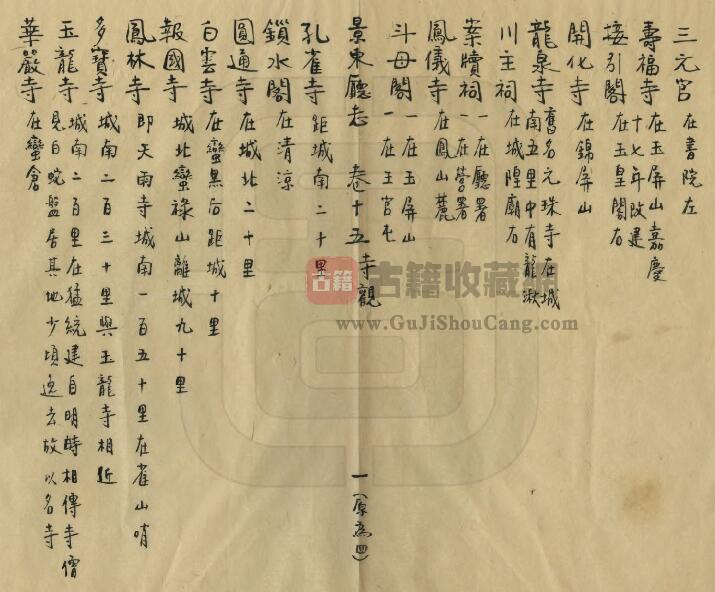 三元宫 在書院左
壽福寺 在玉屏山嘉慶
十七年改建
接引閣 在玉皇閣右
開化寺 在錦屏山
龍泉寺 舊名元珠寺在城
南五里中有龍湫
川主祠 在城隍廟右
案牘祠 一在廳署
一在營署
鳳儀寺 在鳳山麓
斗母閣 一在玉屏山
一在王官屯
景東廳志 卷十五 寺觀 一(原為四)
孔雀寺 距城南二十里
鎖水閣 在清凉
圓通寺 在城北二十里
白雲寺 在蠻黑后距城十里
報國寺 城北蠻祿山離城九十里
鳳林寺 即天雨寺城南一百五十里在雀山哨
多寶寺 城南二百三十里與玉龍寺相近
玉龍寺 城南二百里在猛統建自明時相傳寺僧
見白蛇盤居其地少頃逸去故以名寺
華嚴寺 在蠻倉
古籍 古籍收藏
www.GuJiShouCang.com